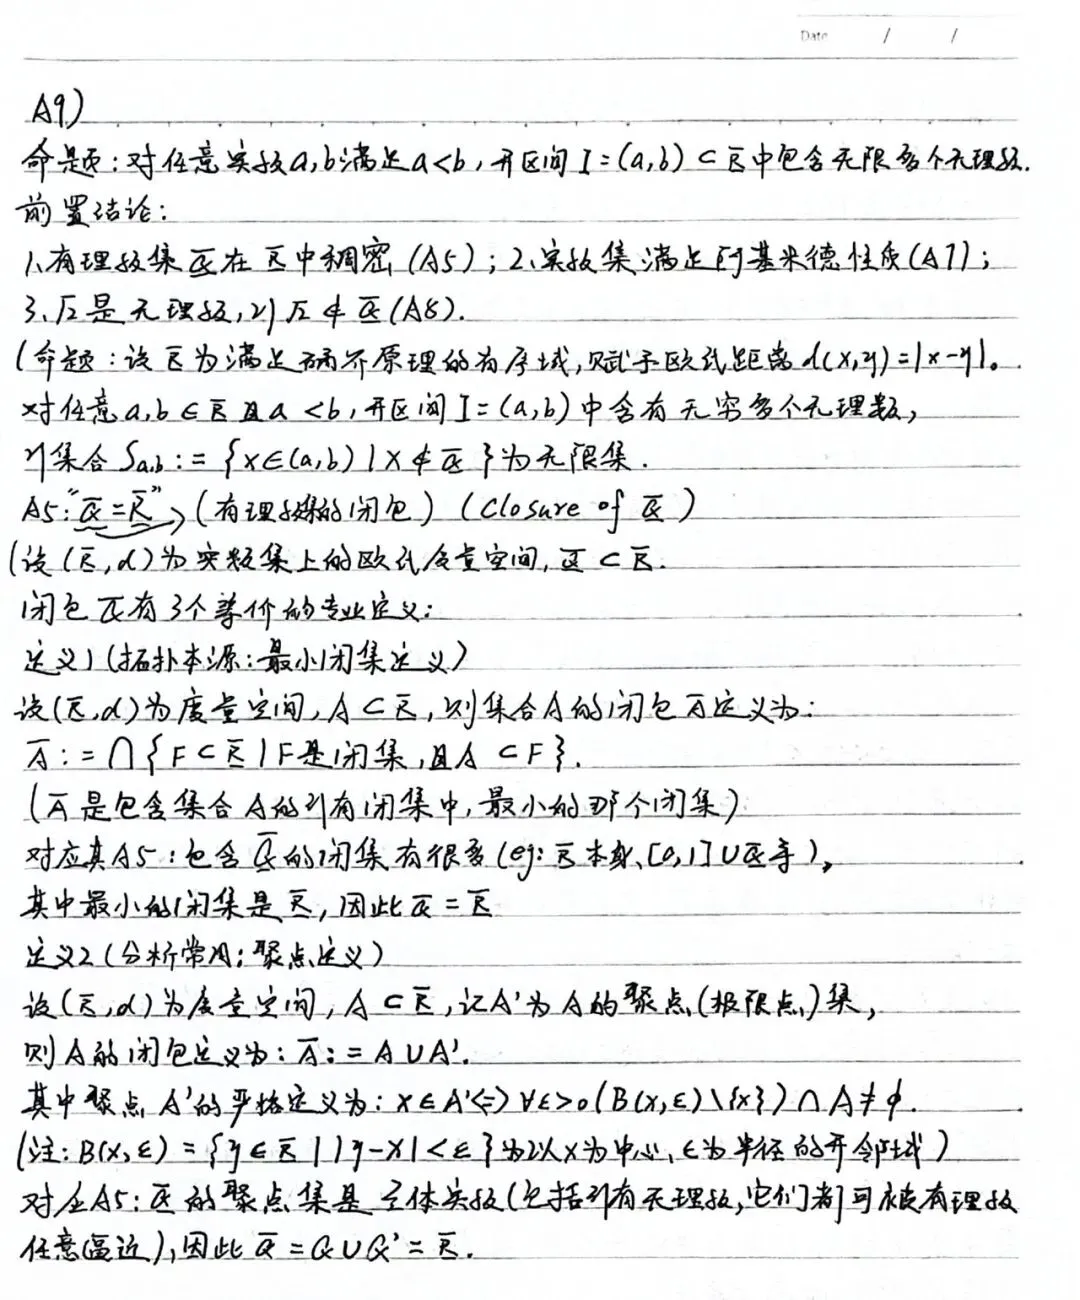 Date / /
A9)
命题:对任意实数a,b满足a<b,开区间I=(a,b)⊂ℝ中包含无限多个无理数.
前置结论:
1.有理数集ℚ在ℝ中稠密(A5);2.实数集满足阿基米德性质(A7);
3.√2是无理数,即√2∉ℚ(A8).
(命题:设ℝ为满足确界原理的有序域,赋予欧氏距离d(x,y)=|x-y|。
对任意a,b∈ℝ且a<b,开区间I=(a,b)中含有无穷多个无理数,
即集合Sa,b:={x∈(a,b)|x∉ℚ}为无限集.
A5:"ℚ̅=ℝ"→(有理数集的闭包)(Closure of ℚ)
(设(ℝ,d)为实数集上的欧氏度量空间,ℚ⊂ℝ.
闭包ℚ̅有3个等价的专业定义:
定义1(拓扑本源:最小闭集定义)
设(ℝ,d)为度量空间,A⊂ℝ,则集合A的闭包A̅定义为:
A̅:=⋂{F⊂ℝ|F是闭集,且A⊂F}.
(A̅是包含集合A的所有闭集中,最小的那个闭集)
对应其A5:包含ℚ的闭集有很多(eg:ℝ本身、[0,1]∪ℚ等),
其中最小的闭集是ℝ,因此ℚ̅=ℝ
定义2(分析常用:聚点定义)
设(ℝ,d)为度量空间,A⊂ℝ,记A'为A的聚点(极限点)集,
则A的闭包定义为:A̅:=A∪A'.
其中聚点A'的严格定义为:x∈A'⇔∀ε>0(B(x,ε)\{x})∩A≠ϕ.
(注:B(x,ε)={y∈ℝ||y-x|<ε}为以x为中心,ε为半径的开邻域)
对应A5:ℚ的聚点集是全体实数(包括所有无理数,它们都可被有理数
任意逼近),因此ℚ̅=ℚ∪ℚ'=ℝ.